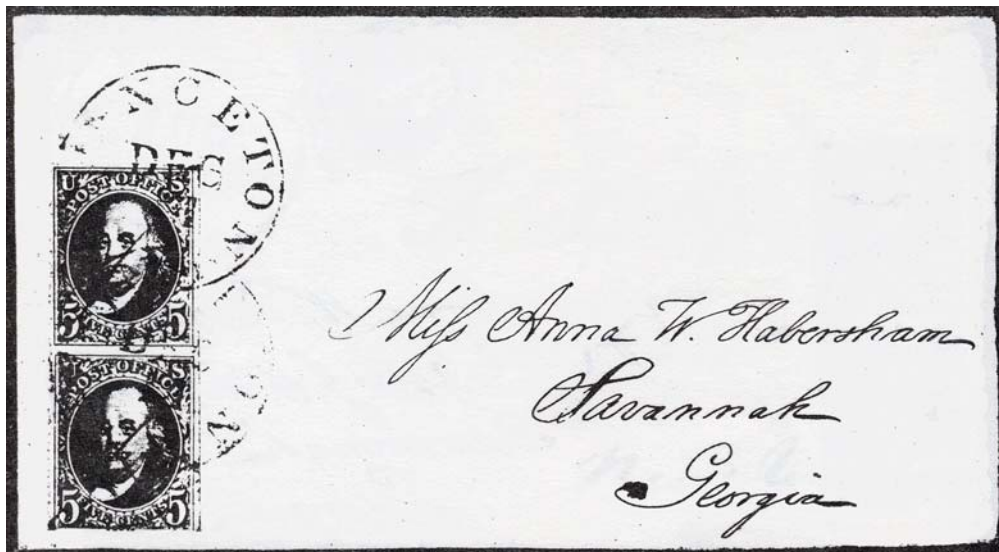 INCETON
DEC
U S
POST OFFICE
5 FIVE CENTS 5
U S
POST OFFICE
5 FIVE CENTS 5
Miſs Anna W. Habersham
Savannah
Georgia